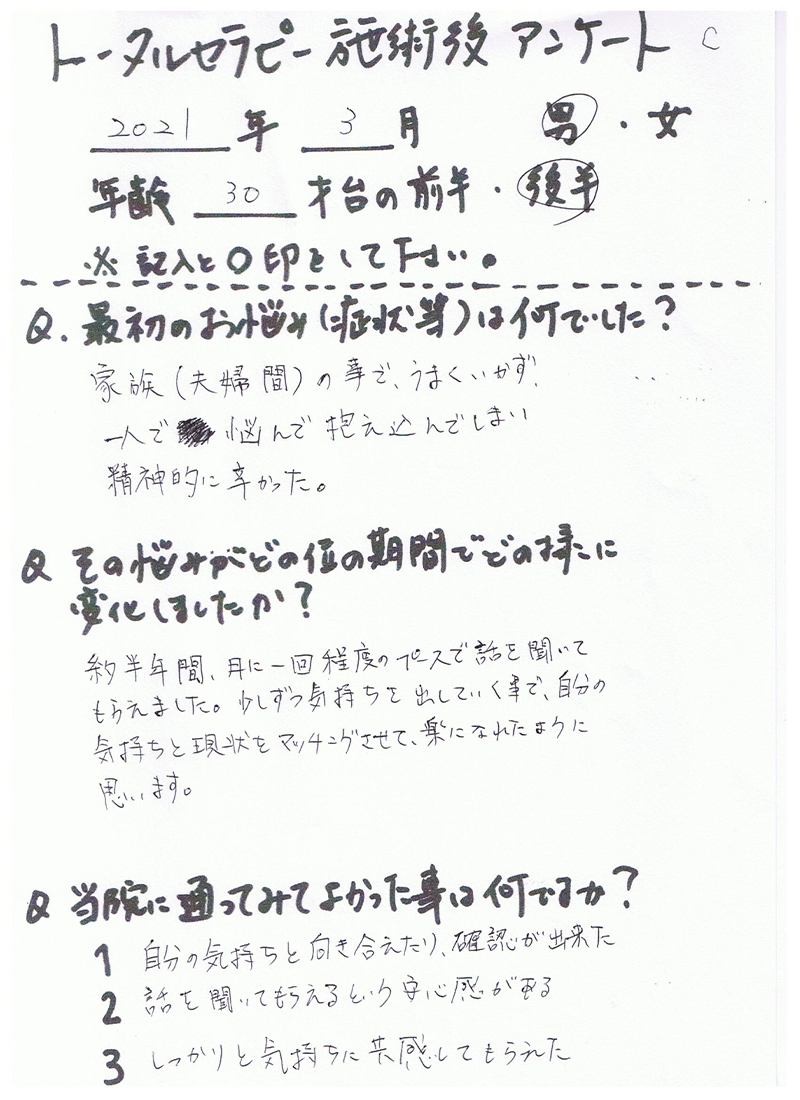 トータルセラピー施術後 アンケート C
2021 年 3 月 男・女
年齢 30 才台の前半・後半
※記入と○印をして下さい。
Q. 最初のお悩み(症状等)は何でした?
家族(夫婦間)の事で、うまくいかず、
一人で 悩んで抱え込んでしまい
精神的に辛かった。
Q その悩みがどの位の期間でどの様に
変化しましたか?
約半年間、月に一回程度のペースで話を聞いて
もらえました。少しずつ気持ちを出していく事で、自分の
気持ちと現状をマッチングさせて、楽になれたように
思います。
Q 当院に通ってみてよかった事は何ですか?
1 自分の気持ちと向き合えたり、確認が出来た
2 話を聞いてもらえるという安心感がある
3 しっかりと気持ちに共感してもらえた